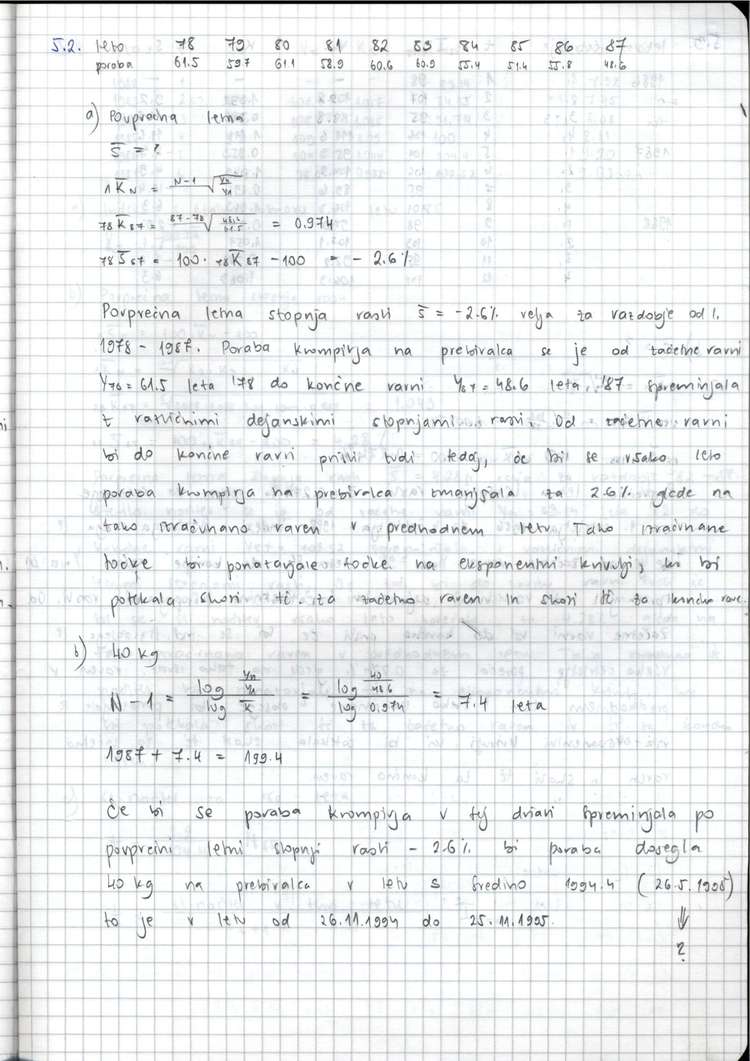 5.2. leto 78 79 80 81 82 83 84 85 86 87
poraba 61.5 59.7 61.1 58.9 60.6 60.9 55.4 51.4 55.8 48.6
a) Povprečna letna
s̄ = ?
1K̄N = N-1√(YN/Y1)
78K̄87 = 87-78√(48.6/61.5) = 0.974
78S̄87 = 100 · 78K̄87 - 100 = - 2.6%
Povprečna letna stopnja rasti s̄ = -2.6% velja za razdobje od l.
1978 - 1987. Poraba krompirja na prebivalca se je od začetne ravni
Y78 = 61.5 leta '78 do končne ravni Y87 = 48.6 leta '87 spreminjala
z različnimi dejanskimi stopnjami rasti. Od začetne ravni
bi do končne ravni prišli tudi tedaj, če bi se vsako leto
poraba krompirja na prebivalca zmanjšala za 2.6% glede na
tako izračunano raven v predhodnem letu. Tako izračunane
točke bi ponazarjale točke na eksponentni krivulji, ki bi
potekala skozi tč. za začetno raven in skozi tč za končno rav.
b) 40 kg
N-1 = log (YN/Y1) / log K̄ = log (40/48.6) / log 0.974 = 7.4 leta
1987 + 7.4 = 199.4
Če bi se poraba krompirja v tej državi spreminjala po
povprečni letni stopnji rasti - 2.6% bi poraba dosegla
40 kg na prebivalca v letu s sredino 1994.4 (26.5.1995)
to je v letu od 26.11.1994 do 25.11.1995. ⇓
?